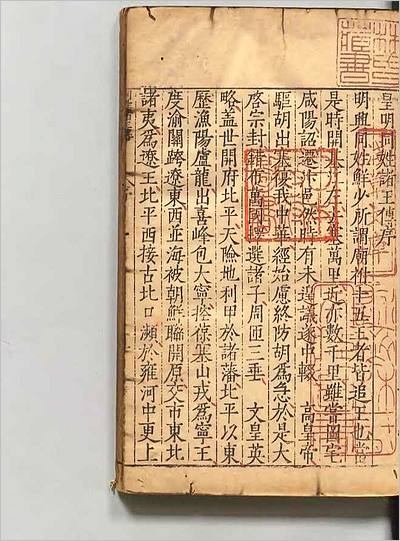 皇明同姓諸王傳序
明興同姓鮮少所謂廟祔十五王者皆追王也當
是時開江左萬里近亦數千里雖嘗圖宅
咸陽詔遷汴邑然時有未遑議遂中輟 高皇帝
驅胡出塞復我中華經始慮終防胡為急於是大
啓宗封錯布萬國擇選諸子周匝三垂 文皇英
略盖世開府北平天險地利甲於諸藩北平以東
歷漁陽盧龍出喜峰包大寧控葆塞山戎爲寧王
度渝關跨遼東西並海被朝鮮聯開原交市東北
諸夷爲遼王北平西接古北口瀕於雍河中更上